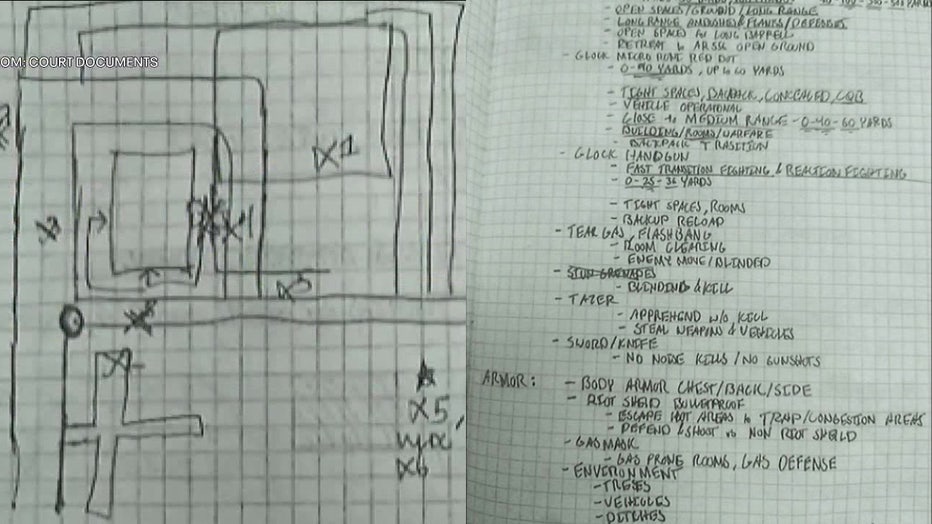 OM: COURT DOCUMENTS
X1
X5
X6
- OPEN SPACES/GROUND/LONG RANGE
- LONG RANGE AMBUSHES & FLANKS/DEFENSES
- OPEN SPACES LONG BARREL
- RETREAT OPEN GROUND
- GLOCK MICRO RONI RED DOT
- 0-40 YARDS, UP TO 60 YARDS
- TIGHT SPACES, BACKPACK, CONCEALED, CQB
- VEHICLE OPERATIONAL
- CLOSE TO MEDIUM RANGE - 0-40-60 YARDS
- BUILDING/ROOMS/WARFARE
- BACKPACK TRASITION
- GLOCK HANDGUN
- FAST TRANSITION FIGHTING & REACTION FIGHTING
- 0-25-36 YARDS
- TIGHT SPACES, ROOMS
- BACKUP RELOAD
- TEAR GAS, FLASHBANG
- ROOM CLEARING
- ENEMY MOVE/BLINDED
- STUN GRENADES
- BLINDING & KILL
- TAZER
- APPREHEND W/O KILL
- STEAL WEAPONS & VEHICLES
- SWORD/KNIFE
- NO NOISE KILLS/NO GUNSHOTS
ARMOR: - BODY ARMOR CHEST/BACK/SIDE
- RIOT SHEILD BULLETPROOF
- ESCAPE HOT AREAS TRAP/CONGESTION AREAS
- DEFEND & SHOOT VS NON RIOT SHEILD
- GAS MASK
- GAS PRONE ROOMS, GAS DEFENSE
- ENVIRONMENT
- TREES
- VEHICLES
- DITCHES